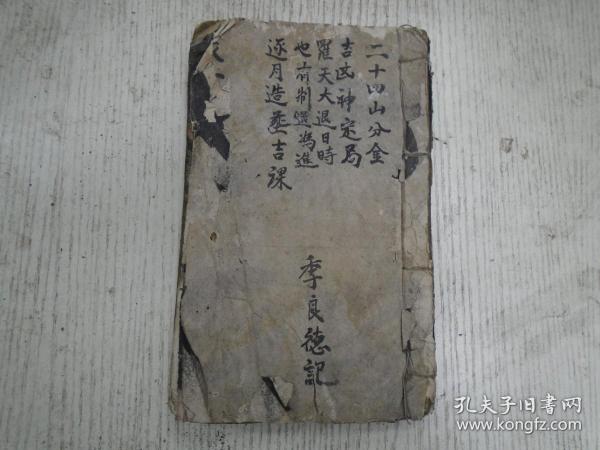 二十四山分金
吉凶神定局
羅天大退日時
也前制選馮進
逐月造葬吉課
季良德記
孔夫子旧书网
www.kongfz.com